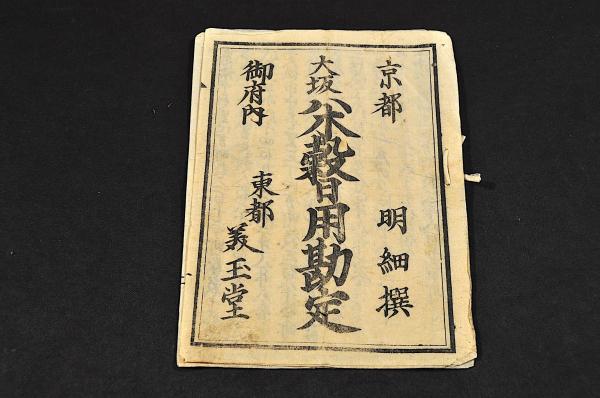 京都 明細撰
大坂 八木穀日用勘定
御府内 東都 美玉堂